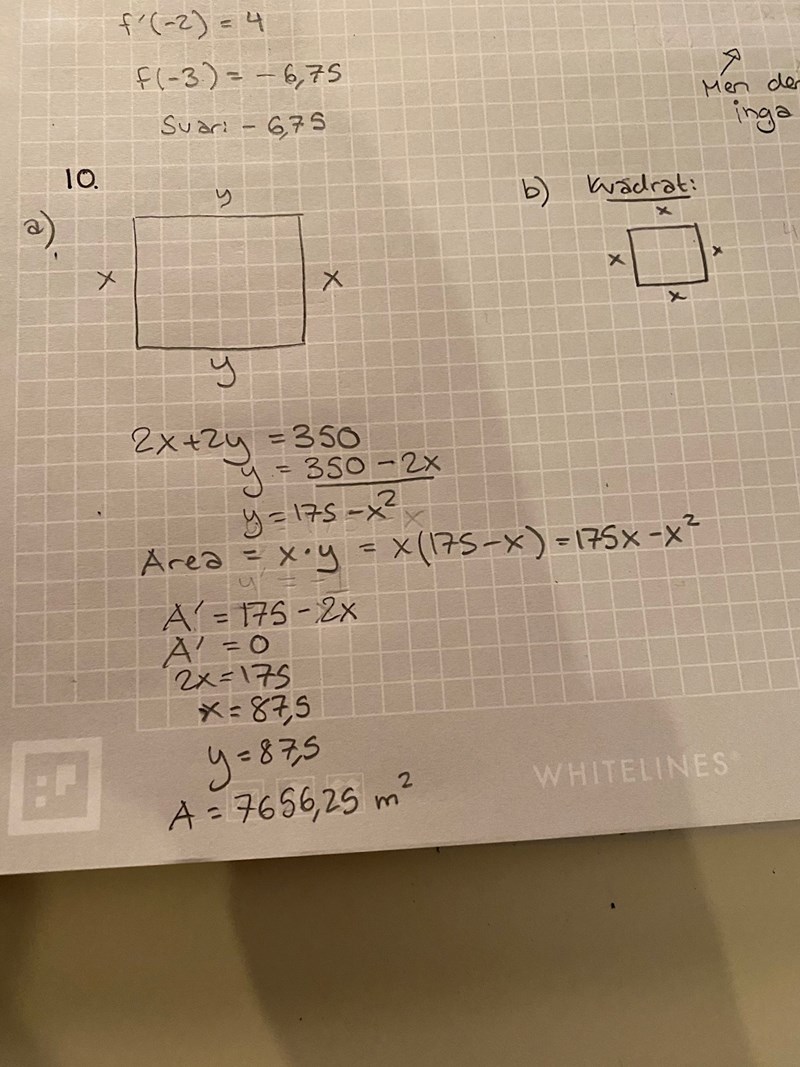 f'(-2) = 4
f(-3) = -6,75
Svar: -6,75
Men
inga
10.
a)
y
x
x
y
2x+2y = 350
y = 350 - 2x
y = 175 - x²
Area = x·y = x(175-x) = 175x - x²
A' = 175 - 2x
A' = 0
2x = 175
x = 87,5
y = 87,5
A = 7656,25 m²
b) Kvadrat:
x
x
x
x
WHITELINES